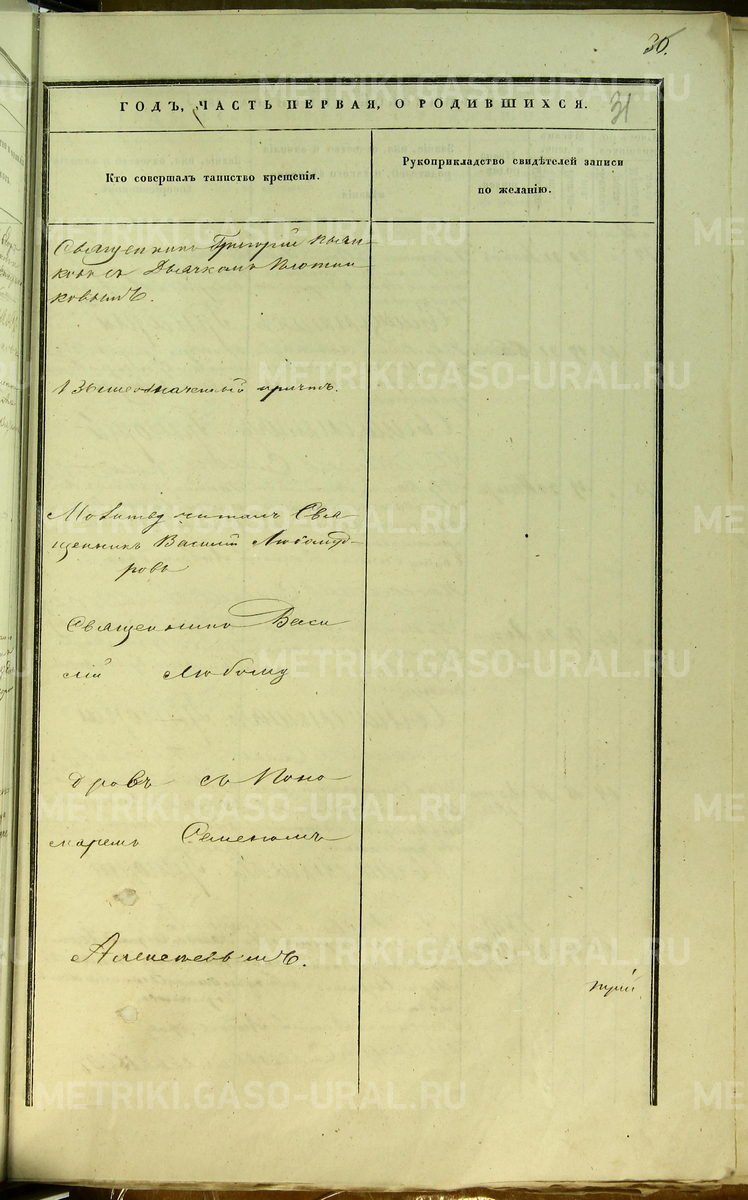 30.
ГОДЪ, ЧАСТЬ ПЕРВАЯ, О РОДИВШИХСЯ.
31
Кто совершалъ таинство крещенія.
Рукоприкладство свидѣтелей записи
по желанію.
Священникъ Григорій
съ Дьячкомъ Плотни
ковымъ.
Вышеозначенный причтъ.
Молитву читалъ Свя-
щенникъ Василій Любомуд-
ровъ
Священникъ Васи
лій Любому
дровъ съ Поно
маремъ Семеномъ
Алексѣевымъ.
METRIKI.GASO-URAL.RU